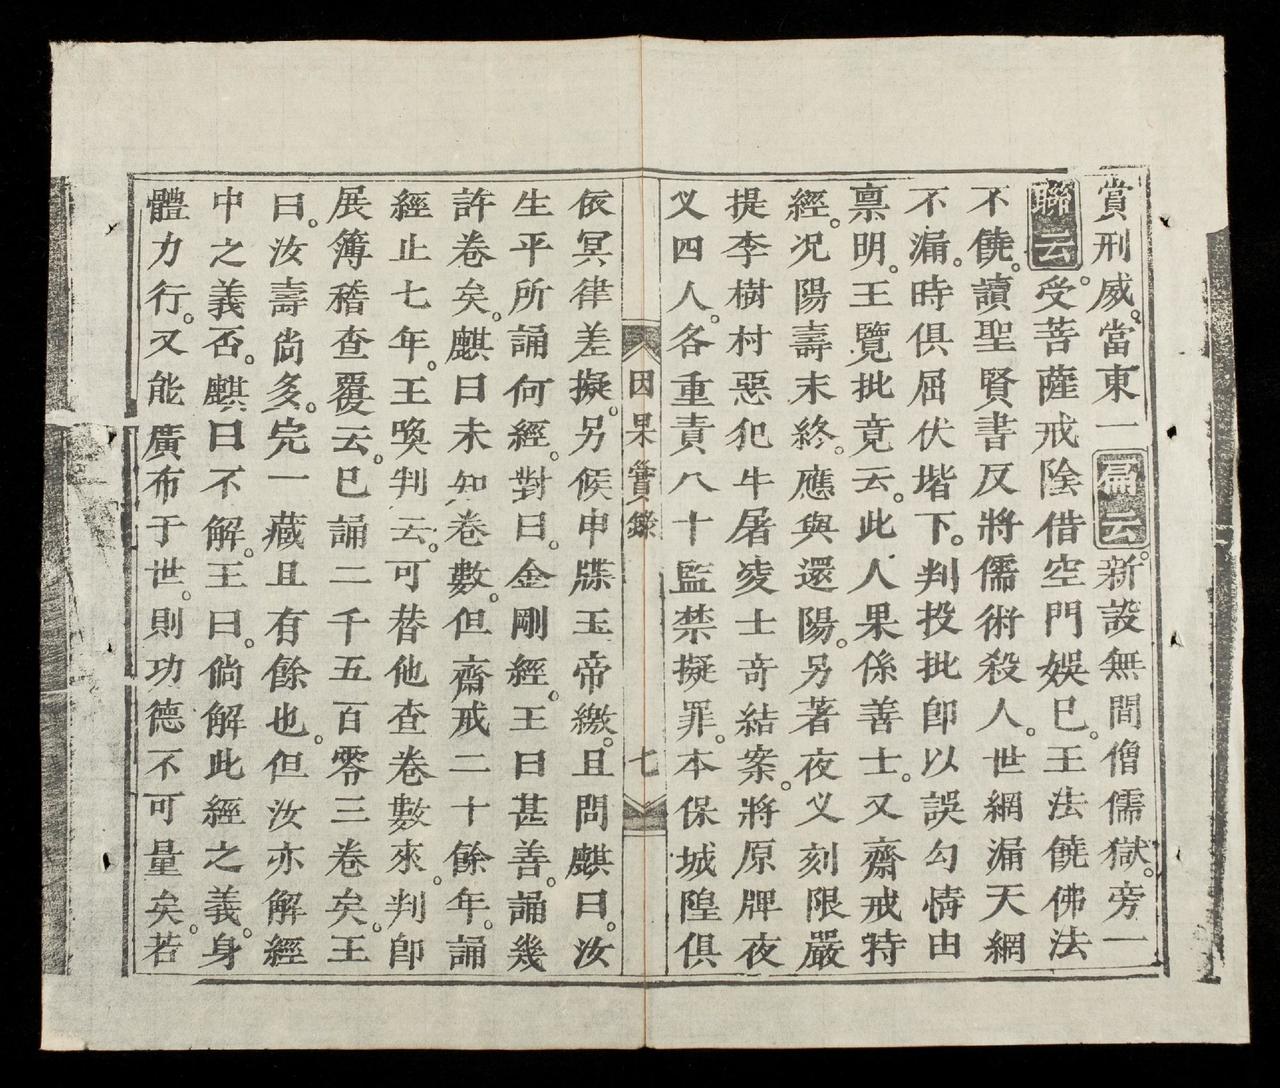 賞刑威。當東一扁云。新設無間僧儒獄。旁一
聯云。受菩薩戒陰借空門娛巳。王法饒佛法
不饒。讀聖賢書反將儒術殺人。世網漏天網
不漏。時俱屈伏堦下。判投批卽以誤勾情由
禀明。王覽批竟云。此人果係善士。又齋戒特
經。况陽壽未終。應與還陽。另著夜义刻限嚴
提李樹村惡犯牛屠凌士奇結案。將原牌夜
义四人。各重責八十監禁擬罪。本保城隍俱
因果實錄 七
依冥律差擬。另候申牒玉帝繳。且問麒曰。汝
生平所誦何經。對曰。金剛經。王曰甚善。誦幾
許卷矣。麒曰未知卷數。但齋戒二十餘年。誦
經止七年。王喚判云。可替他查卷數來。判卽
展簿稽查覆云。巳誦二千五百零三卷矣。王
曰。汝壽尙多。完一藏且有餘也。但汝亦解經
中之義否。麒曰不解。王曰。倘解此經之義。身
體力行。又能廣布于世。則功德不可量矣。若